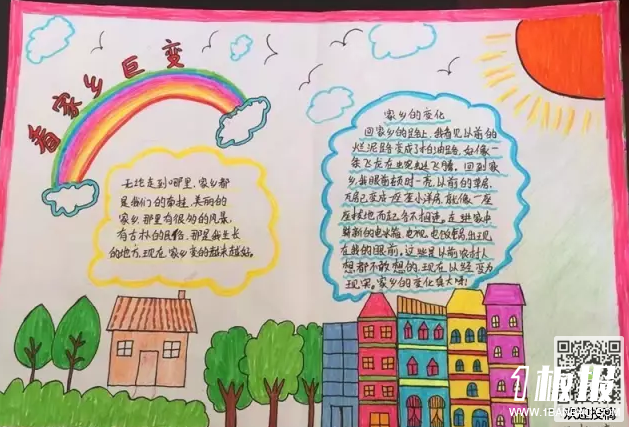 看家乡巨变
无论走到哪里,家乡都
是我们的牵挂,美丽的
家乡,那里有很多的风景,
有古朴的民俗,那是我生长
的地方,现在家乡变的越来越好。
家乡的变化
回家乡的路上,我看见以前的
烂泥路变成了柏油路,好像一
条飞龙在
回到家
乡,我眼前顿时一亮,以前的草房,
瓦房已变成一座座小洋房,就像一座
座拔地而起
走进家中
崭新的电冰箱,电视,电饭锅,出现
在我的眼前,这些是以前农村人
想都不敢想的,现在以经变为
现实。家乡的变化真大呀!
1板报
WWW.1BANBAO.COM
欢迎投稿